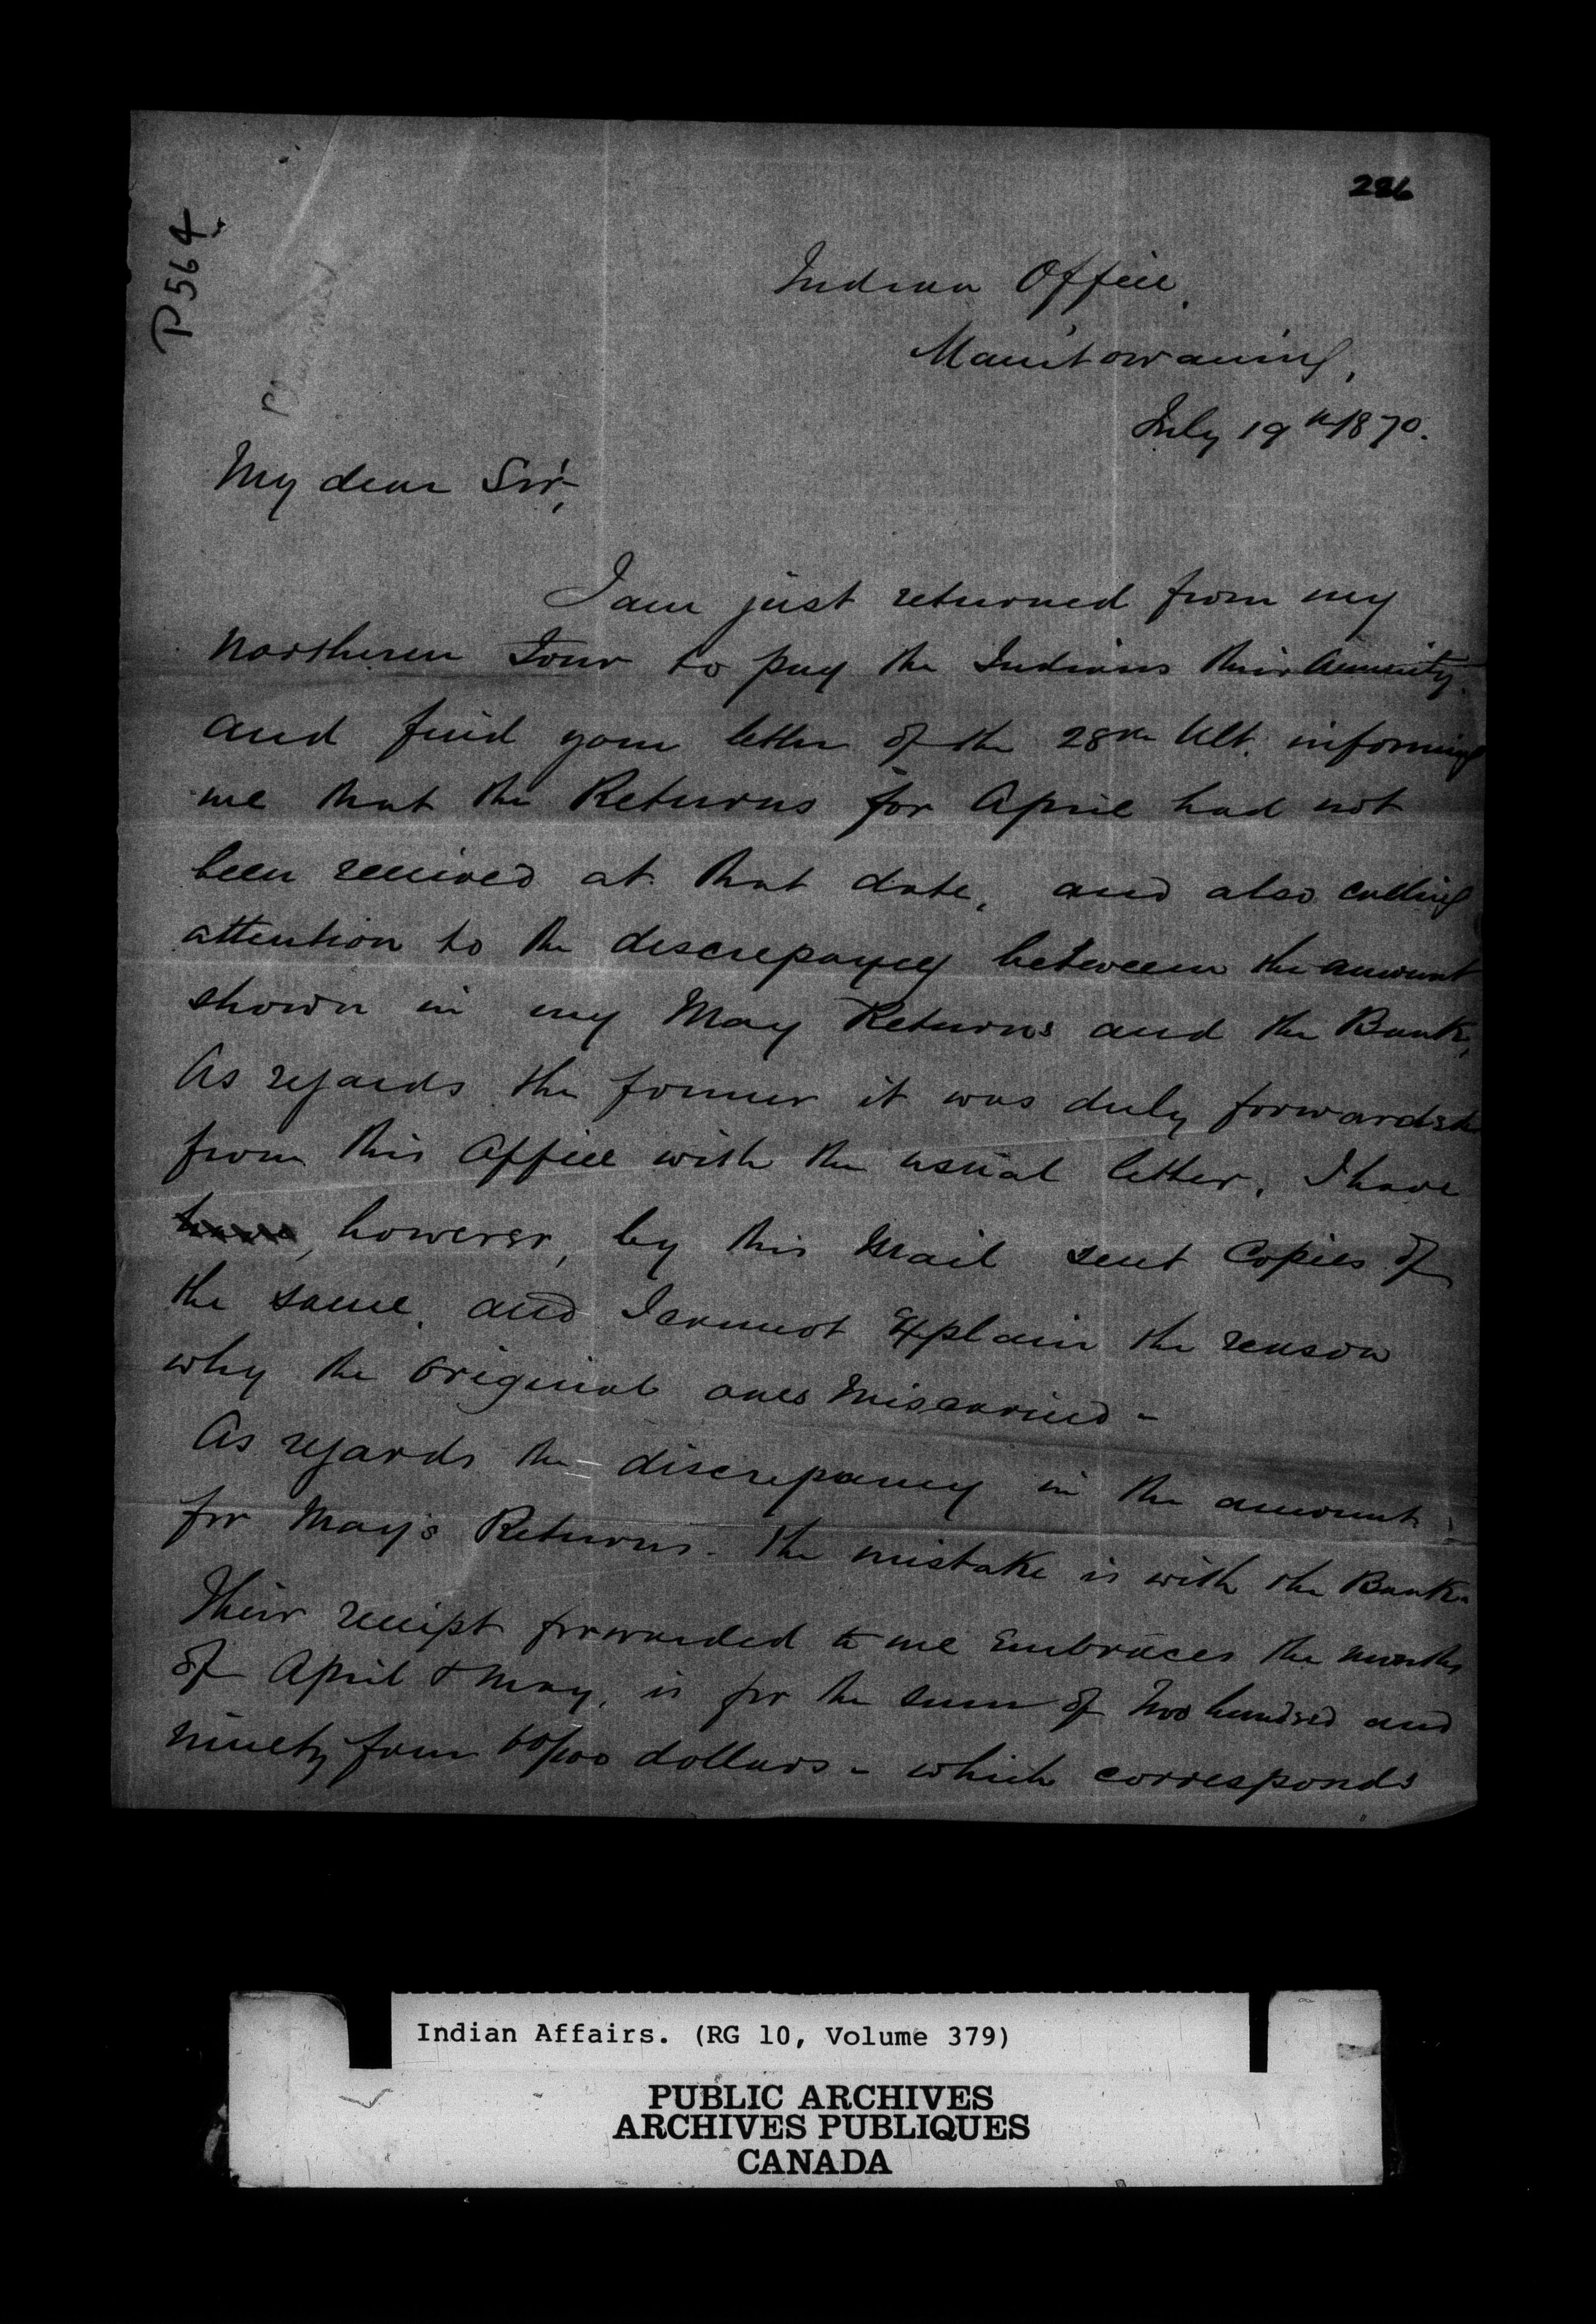 226
P564
Indian Office,
Manitowaning,
July 19th 1870.
My dear Sir,
I am just returned from my
Northern Tour to pay the Indians their Annuity.
and find your letter of the 28th Ult. informing
me that the Returns for April had not
been received at that date, and also calling
attention to the discrepancy between the amount
shown in my May Returns and the Bank,
As regards the former it was duly forwarded
from this Office with the usual letter, I have
have, however, by this Mail sent Copies of
the same, and I cannot Explain the reason
why the Original ones Miscarried -
As regards the discrepancy in the amount
for May's Returns - the mistake is with the Bank -
Their receipt forwarded to me Embraces the months
of April & May, is for the sum of Two hundred and
ninety four 60/100 dollars - which corresponds
Indian Affairs. (RG 10, Volume 379)
PUBLIC ARCHIVES
ARCHIVES PUBLIQUES
CANADA